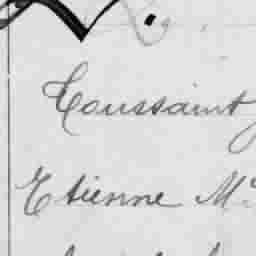 Toussaint
Etienne Mr